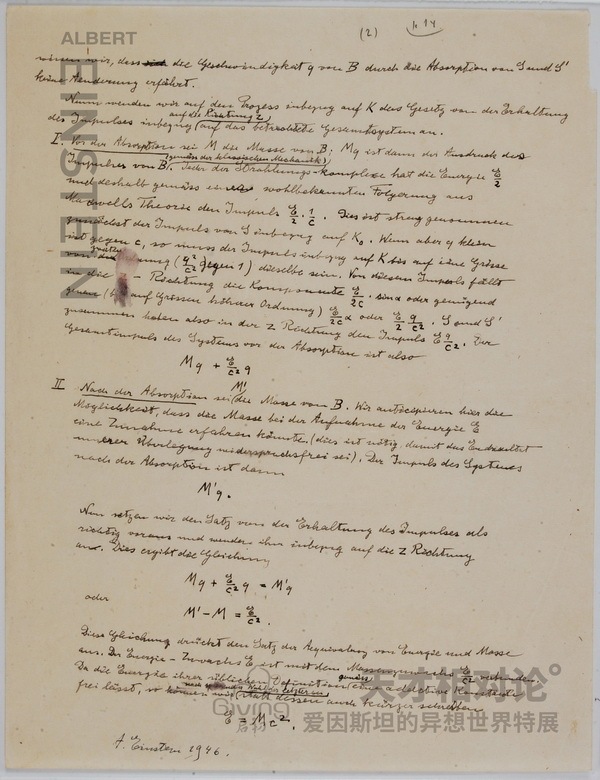 (2) p. 14
ALBERT
EINSTEIN
wissen wir, dass die Geschwindigkeit q von B durch die Absorption von S und S'
keine Aenderung erfährt.
Nun wenden wir auf den Prozess inbezug auf K das Gesetz von der Erhaltung
auf die Richtung z
des Impulses inbezug auf das betrachtete Gesamtsystem an.
I. Vor der Absorption sei M die Masse von B; Mq ist dann der Ausdruck des
(gemäss der klassischen Mechanik)
Impulses von B. Jeder der Strahlungs-Komplexe hat die Energie E/2
und deshalb gemäss einer wohlbekannten Folgerung aus
Maxwells Theorie den Impuls E/2 · 1/c. Dies ist streng genommen
zunächst der Impuls von S inbezug auf K₀. Wenn aber q klein
ist gegen c, so muss der Impuls inbezug auf K bis auf eine Grösse
von (q²/c² gegen 1) dieselbe sein. Von diesem Impuls fällt
in die - Richtung die Komponente E/2c · sin α oder genügend
genau (bis auf Grössen höherer Ordnung) E/2c α oder E/2 · q/c². S und S'
zusammen haben also in der z Richtung den Impuls E q/c². Der
Gesamtimpuls des Systems vor der Absorption ist also
Mq + E/c² q
II. Nach der Absorption sei M' die Masse von B. Wir anticipieren hier die
Möglichkeit, dass die Masse bei der Aufnahme der Energie E
eine Zunahme erfahren könnte (dies ist nötig, damit das Endresultat
unserer Überlegung widerspruchsfrei sei). Der Impuls des Systems
nach der Absorption ist dann
M'q.
Nun setzen wir den Satz von der Erhaltung des Impulses als
richtig voraus und wenden ihn inbezug auf die z Richtung
an. Dies ergibt die Gleichung
Mq + E/c² q = M'q
oder
M' - M = E/c².
Diese Gleichung drückt den Satz der Aequivalenz von Energie und Masse
aus. Der Energie-Zuwachs E ist mit dem Massenzuwachs E/c² verbunden.
Da die Energie ihrer üblichen Definition gemäss eine additive Konstante
frei lässt, so können wir statt dessen auch kürzer schreiben
E = Mc².
A. Einstein 1946.
天才相对论
爱因斯坦的异想世界特展